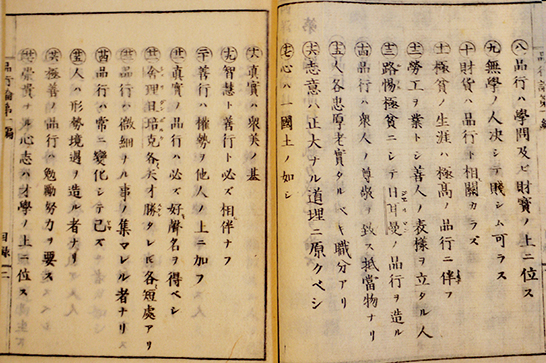 八 品行ハ學問及ビ財寳ノ上ニ位ス
九 無學ノ人決シテ賤シム可ラス
十 財貨ハ品行ト相關カラズ
十一 極貧ノ生涯ハ極高ノ品行ニ伴フ
十二 勞工ヲ業トシ善人ノ表樣ヲ立タル人
十三 路惕極貧ニシテ日耳曼ノ品行ヲ造ル
十四 品行ハ衆人ノ尊敬ヲ致ス抵當物ナリ
十五 人各忠厚老實タルベキ職分アリ
十六 志意ハ正大ナル道理ニ原クベシ
十七 心ハ一國土ノ如シ
十八 真實ハ衆美ノ基
十九 智慧ト善行ト必ズ相伴ナフ
二十 善行ハ權勢ヲ他人ノ上ニ加フ
廿一 真實ノ品行ハ必ズ好聲名ヲ得ベシ
廿二 舍理日培克各天才勝タレ𪜈各短處アリ
廿三 品行ハ微細ナル事ノ集マレル者ナリ
廿四 品行ハ常ニ變化シテ已ズ
廿五 人ハ形勢境遇ヲ造ル者ナリ
廿六 極善ノ品行ハ勉勵努力ヲ要ス
廿七 崇貴ナル心志ハ才學ノ上ニ位ス
品行論第一編
目録 二